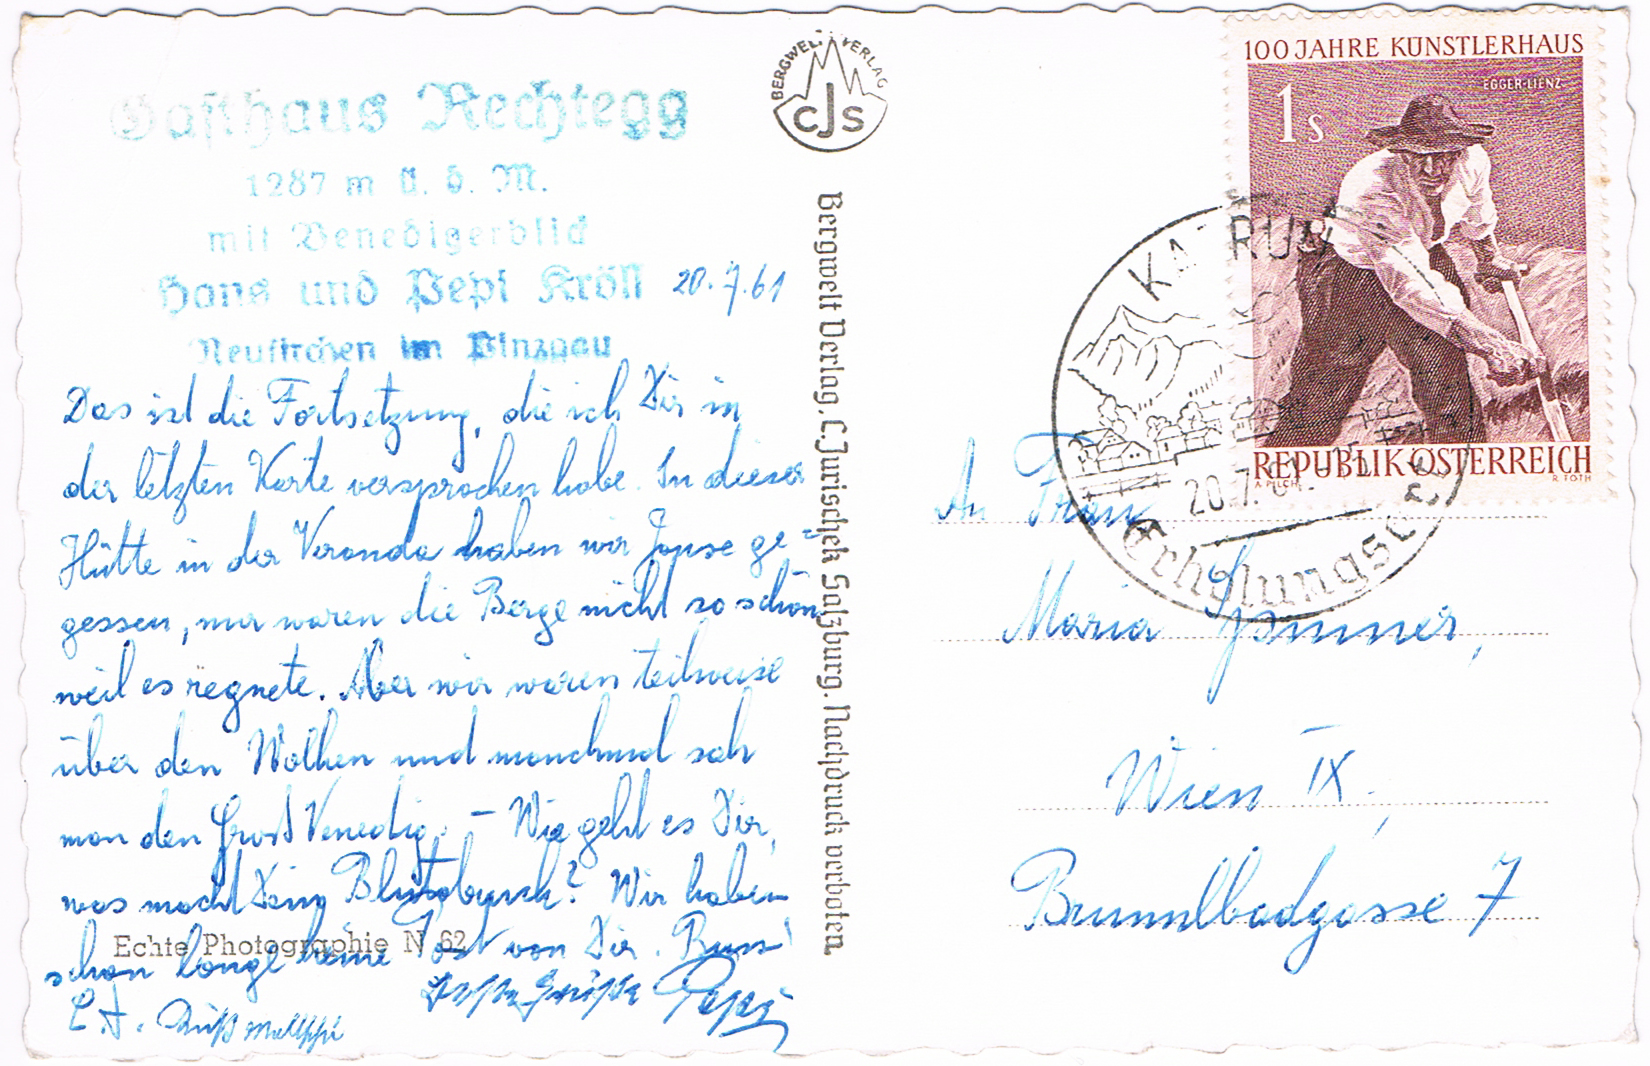 Gasthaus Rechtegg
1287 m ü. d. M.
mit Venedigerblick
Hans und Pepi Kröll
Neukirchen im Pinzgau
20.7.61
Das ist die Fortsetzung, die ich Dir in
der letzten Karte versprochen habe. In dieser
Hütte in der Veranda haben wir Jause ge=
gessen, nur waren die Berge nicht so schön
weil es regnete. Aber wir waren teilweise
über den Wolken und manchmal sah
man den Groß Venedig. – Wie geht es Dir,
was macht Dein Blutdruck? Wir haben
schon lange keine Post von Dir. Bussi
Echte Photographie N 62
BERGWELT VERLAG
CJS
Bergwelt Verlag, C. Jurischek Salzburg. Nachdruck verboten.
100 JAHRE KÜNSTLERHAUS
EGGER-LIENZ
1 S
REPUBLIK ÖSTERREICH
A. PILCH
R. TOTH
KAPRUN
20.7.61
An Frau
Maria
Wien IX.,
Brünnlbadgasse 7